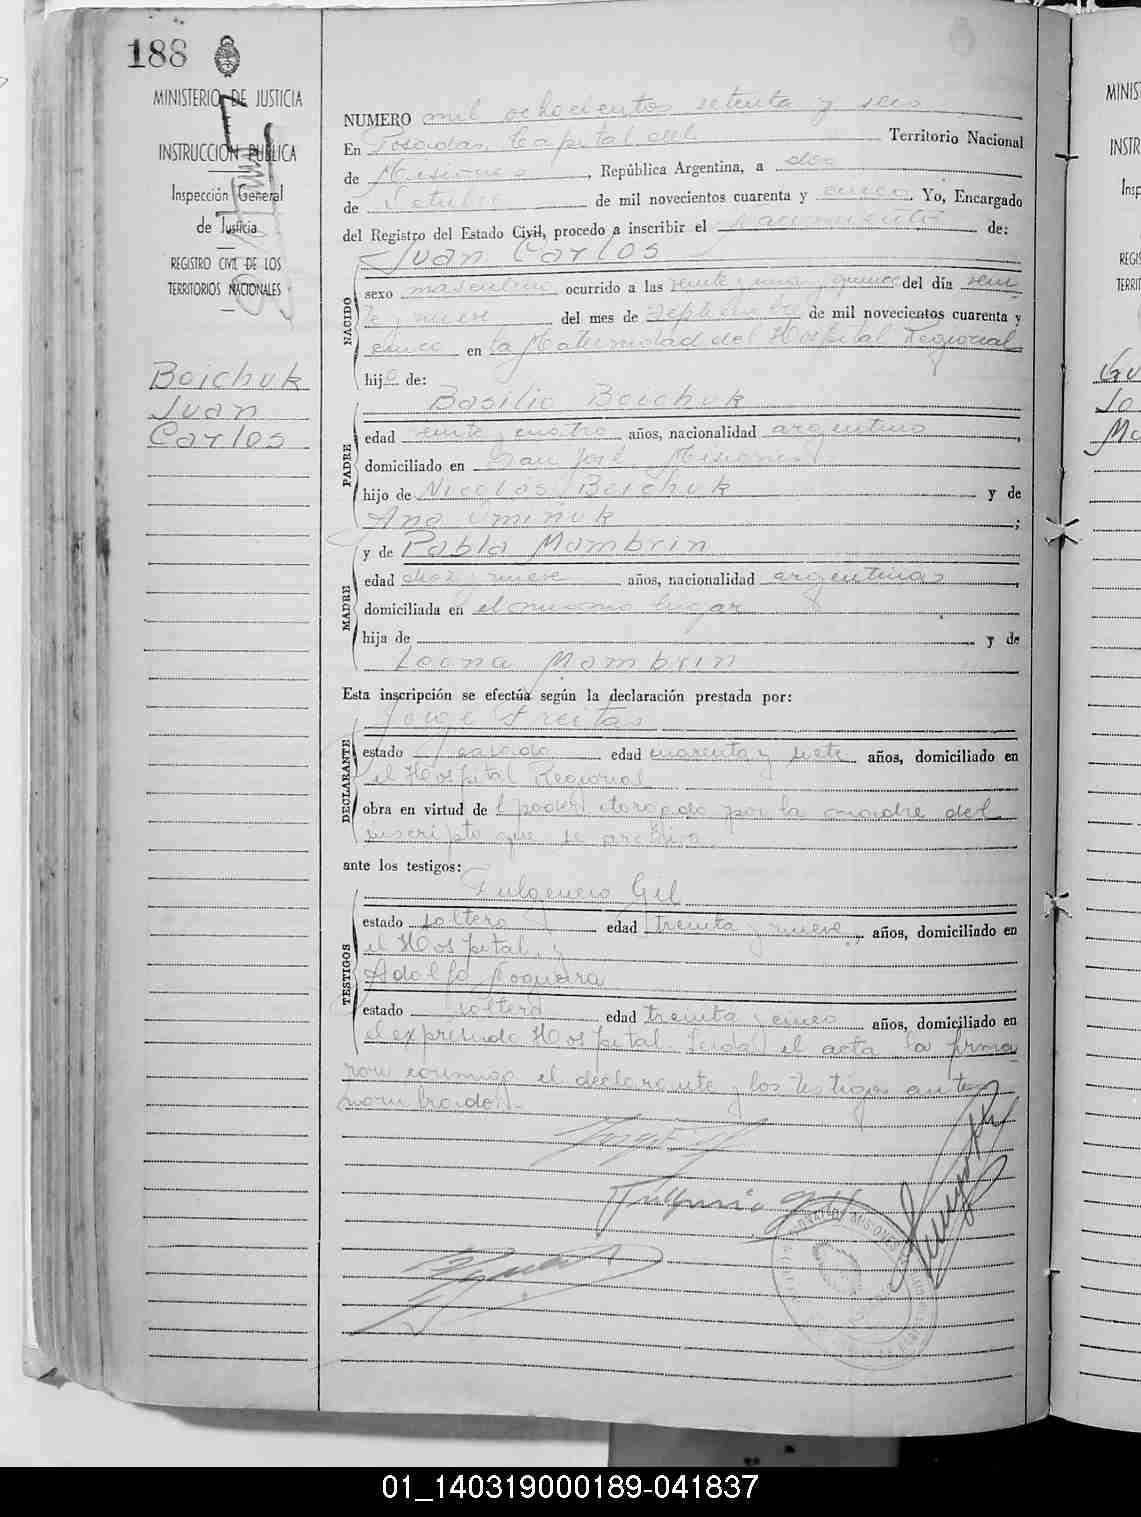 188
MINISTERIO DE JUSTICIA
INSTRUCCION PUBLICA
Inspección General
de Justicia
REGISTRO CIVIL DE LOS
TERRITORIOS NACIONALES
Boichuk
Juan
Carlos
NUMERO mil ochocientos setenta y seis
En Posadas, Capital del Territorio Nacional
de Misiones, República Argentina, a dos
de Octubre de mil novecientos cuarenta y cinco. Yo, Encargado
del Registro del Estado Civil, procedo a inscribir el nacimiento de:
Juan Carlos
NACIDO
sexo masculino ocurrido a las veinte y una y quince del día vein-
te y nueve del mes de Septiembre de mil novecientos cuarenta y
cinco en la Maternidad del Hospital Regional
hijo de:
Basilio Boichuk
PADRE
edad veinte y cuatro años, nacionalidad argentino,
domiciliado en San José, Misiones
hijo de Nicolás Boichuk y de
Ana ;
y de Pabla Mambrin
MADRE
edad diez y nueve años, nacionalidad argentina,
domiciliada en el mismo lugar
hija de y de
Leona Mambrin
Esta inscripción se efectúa según la declaración prestada por:
Jorge Freitas
DECLARANTE
estado casado edad cuarenta y siete años, domiciliado en
el Hospital Regional
obra en virtud de l poder otorgado por la madre del
inscripto que se archiva.
ante los testigos:
Fulgencio Gil
TESTIGOS
estado soltero edad treinta y nueve, años, domiciliado en
el Hospital, y
Adolfo Nogueira
estado soltero edad treinta y cinco años, domiciliado en
el expresado Hospital. Leída el acta la firma
ron conmigo el declarante y los testigos antes
nombrados.-
Fulgencio Gil
01_140319000189-041837
MINIS
INSTR
Insp
REGIS
TERRIT